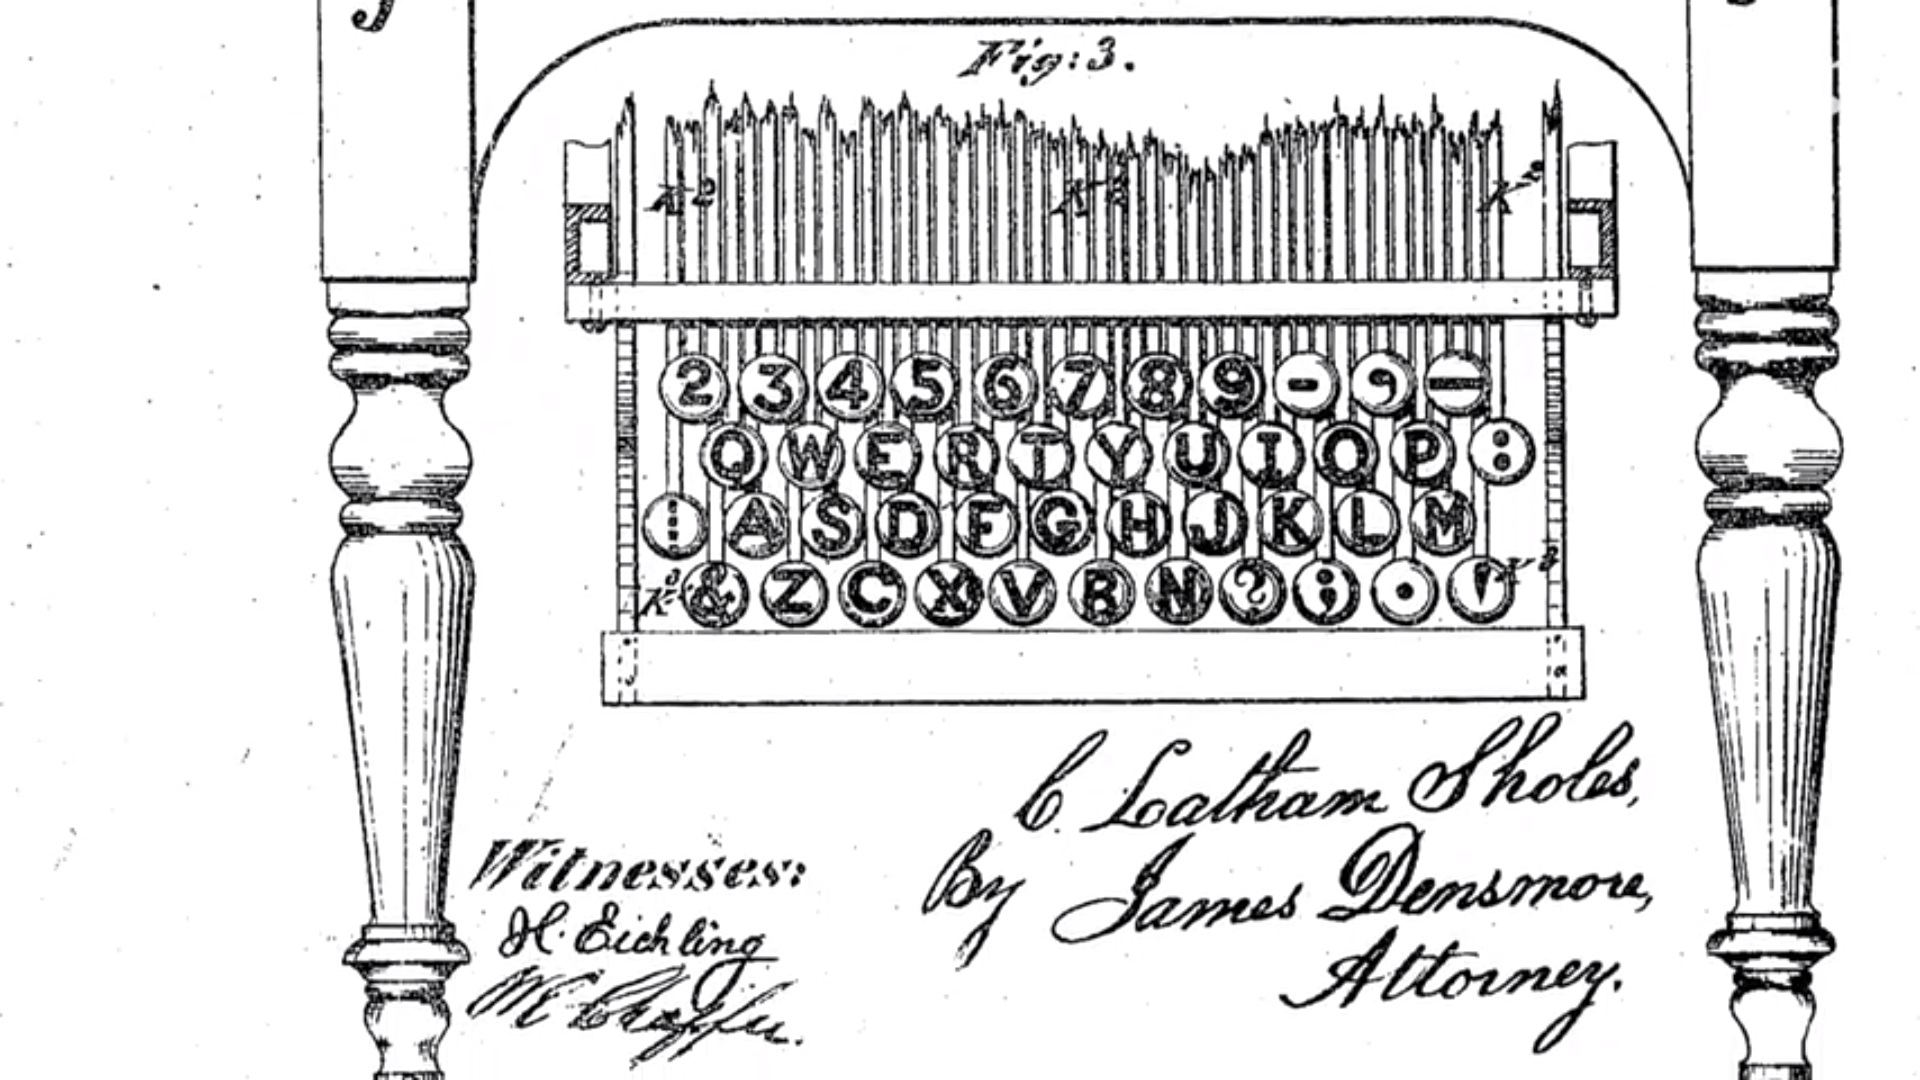 Fig: 3.
K² K² K²
2 3 4 5 6 7 8 9 - , —
Q W E R T Y U I O P :
A S D F G H J K L M
K³ & Z C X V B N ? ; .
C. Latham Sholes,
By James Densmore,
Attorney.
Witnesses:
H. Eichling